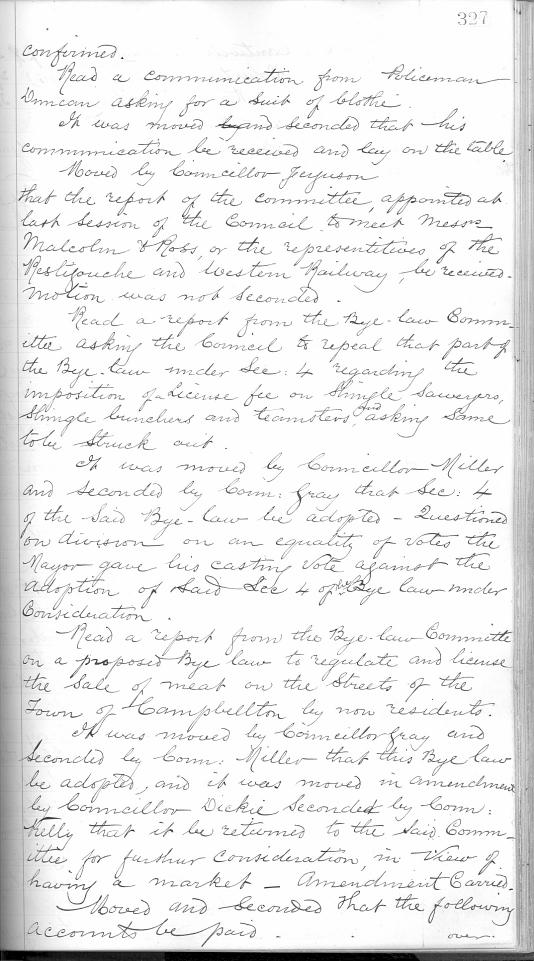 327
confirmed.
Read a communication from Policeman
Duncan asking for a Suit of Clothe.
It was moved and seconded that his
communication be received and lay on the table
Moved by Councillor Ferguson
that the report of the committee, appointed at
last session of the Council to meet Messrs
Malcolm & Ross, or the representitives of the
Restigouche and Western Railway, be received.
Motion was not seconded.
Read a report from the Bye-law Comm-
ittee asking the Council to repeal that part of
the Bye-law under Sec: 4 regarding the
imposition of a License fee on Shingle Sawyers,
Shingle bunchers and teamsters, and asking Same
to be Struck out.
It was moved by Councillor Miller
and seconded by Coun: Gray that Sec: 4
of the Said Bye-law be adopted - Questioned
on division on an equality of votes the
Mayor gave his casting vote against the
adoption of Said Sec 4 of the Bye law under
Consideration.
Read a report from the Bye-law Committe
on a proposed Bye law to regulate and license
the Sale of meat on the Streets of the
Town of Campbellton by non residents.
It was moved by Councillor Gray and
Seconded by Coun: Miller that this Bye law
be adopted, and it was moved in amendment
by Councillor Dickie Seconded by Coun:
Kelly that it be returned to the Said Comm-
ittee for further consideration, in View of
having a market - Amendment Carried.
Moved and Seconded that the following
accounts be paid.
over.